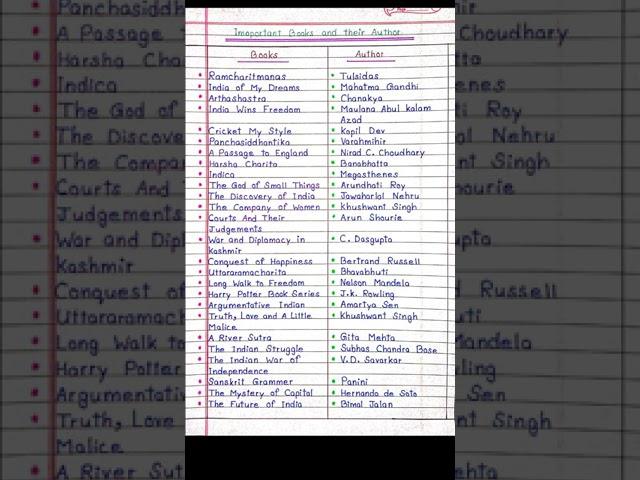 Imoportant Books and their Author
Books Author
Ramcharitmanas Tulsidas
India of My Dreams Mahatma Gandhi
Arthashastra Chanakya
India Wins Freedom Maulana Abul kalam
Azad
Cricket My Style Kapil Dev
Panchasiddhantika Varahmihir
A Passage to England Nirad C. Choudhary
Harsha Charita Banabhatta
Indica Megasthenes
The God of Small Things Arundhati Roy
The Discovery of India Jawaharlal Nehru
The Company of Women Khushwant Singh
Courts And Their Arun Shourie
Judgements
War and Diplomacy in C. Dasgupta
Kashmir
Conquest of Happiness Bertrand Russell
Uttararamacharita Bhavabhuti
Long Walk to Freedom Nelson Mandela
Harry Potter Book Series J.k. Rowling
Argumentative Indian Amartya Sen
Truth, Love and A Little Khushwant Singh
Malice
A River Sutra Gita Mehta
The Indian Struggle Subhas Chandra Bose
The Indian War of V.D. Savarkar
Independence
Sanskrit Grammer Panini
The Mystery of Capital Hernando de Soto
The Future of India Bimal Jalan